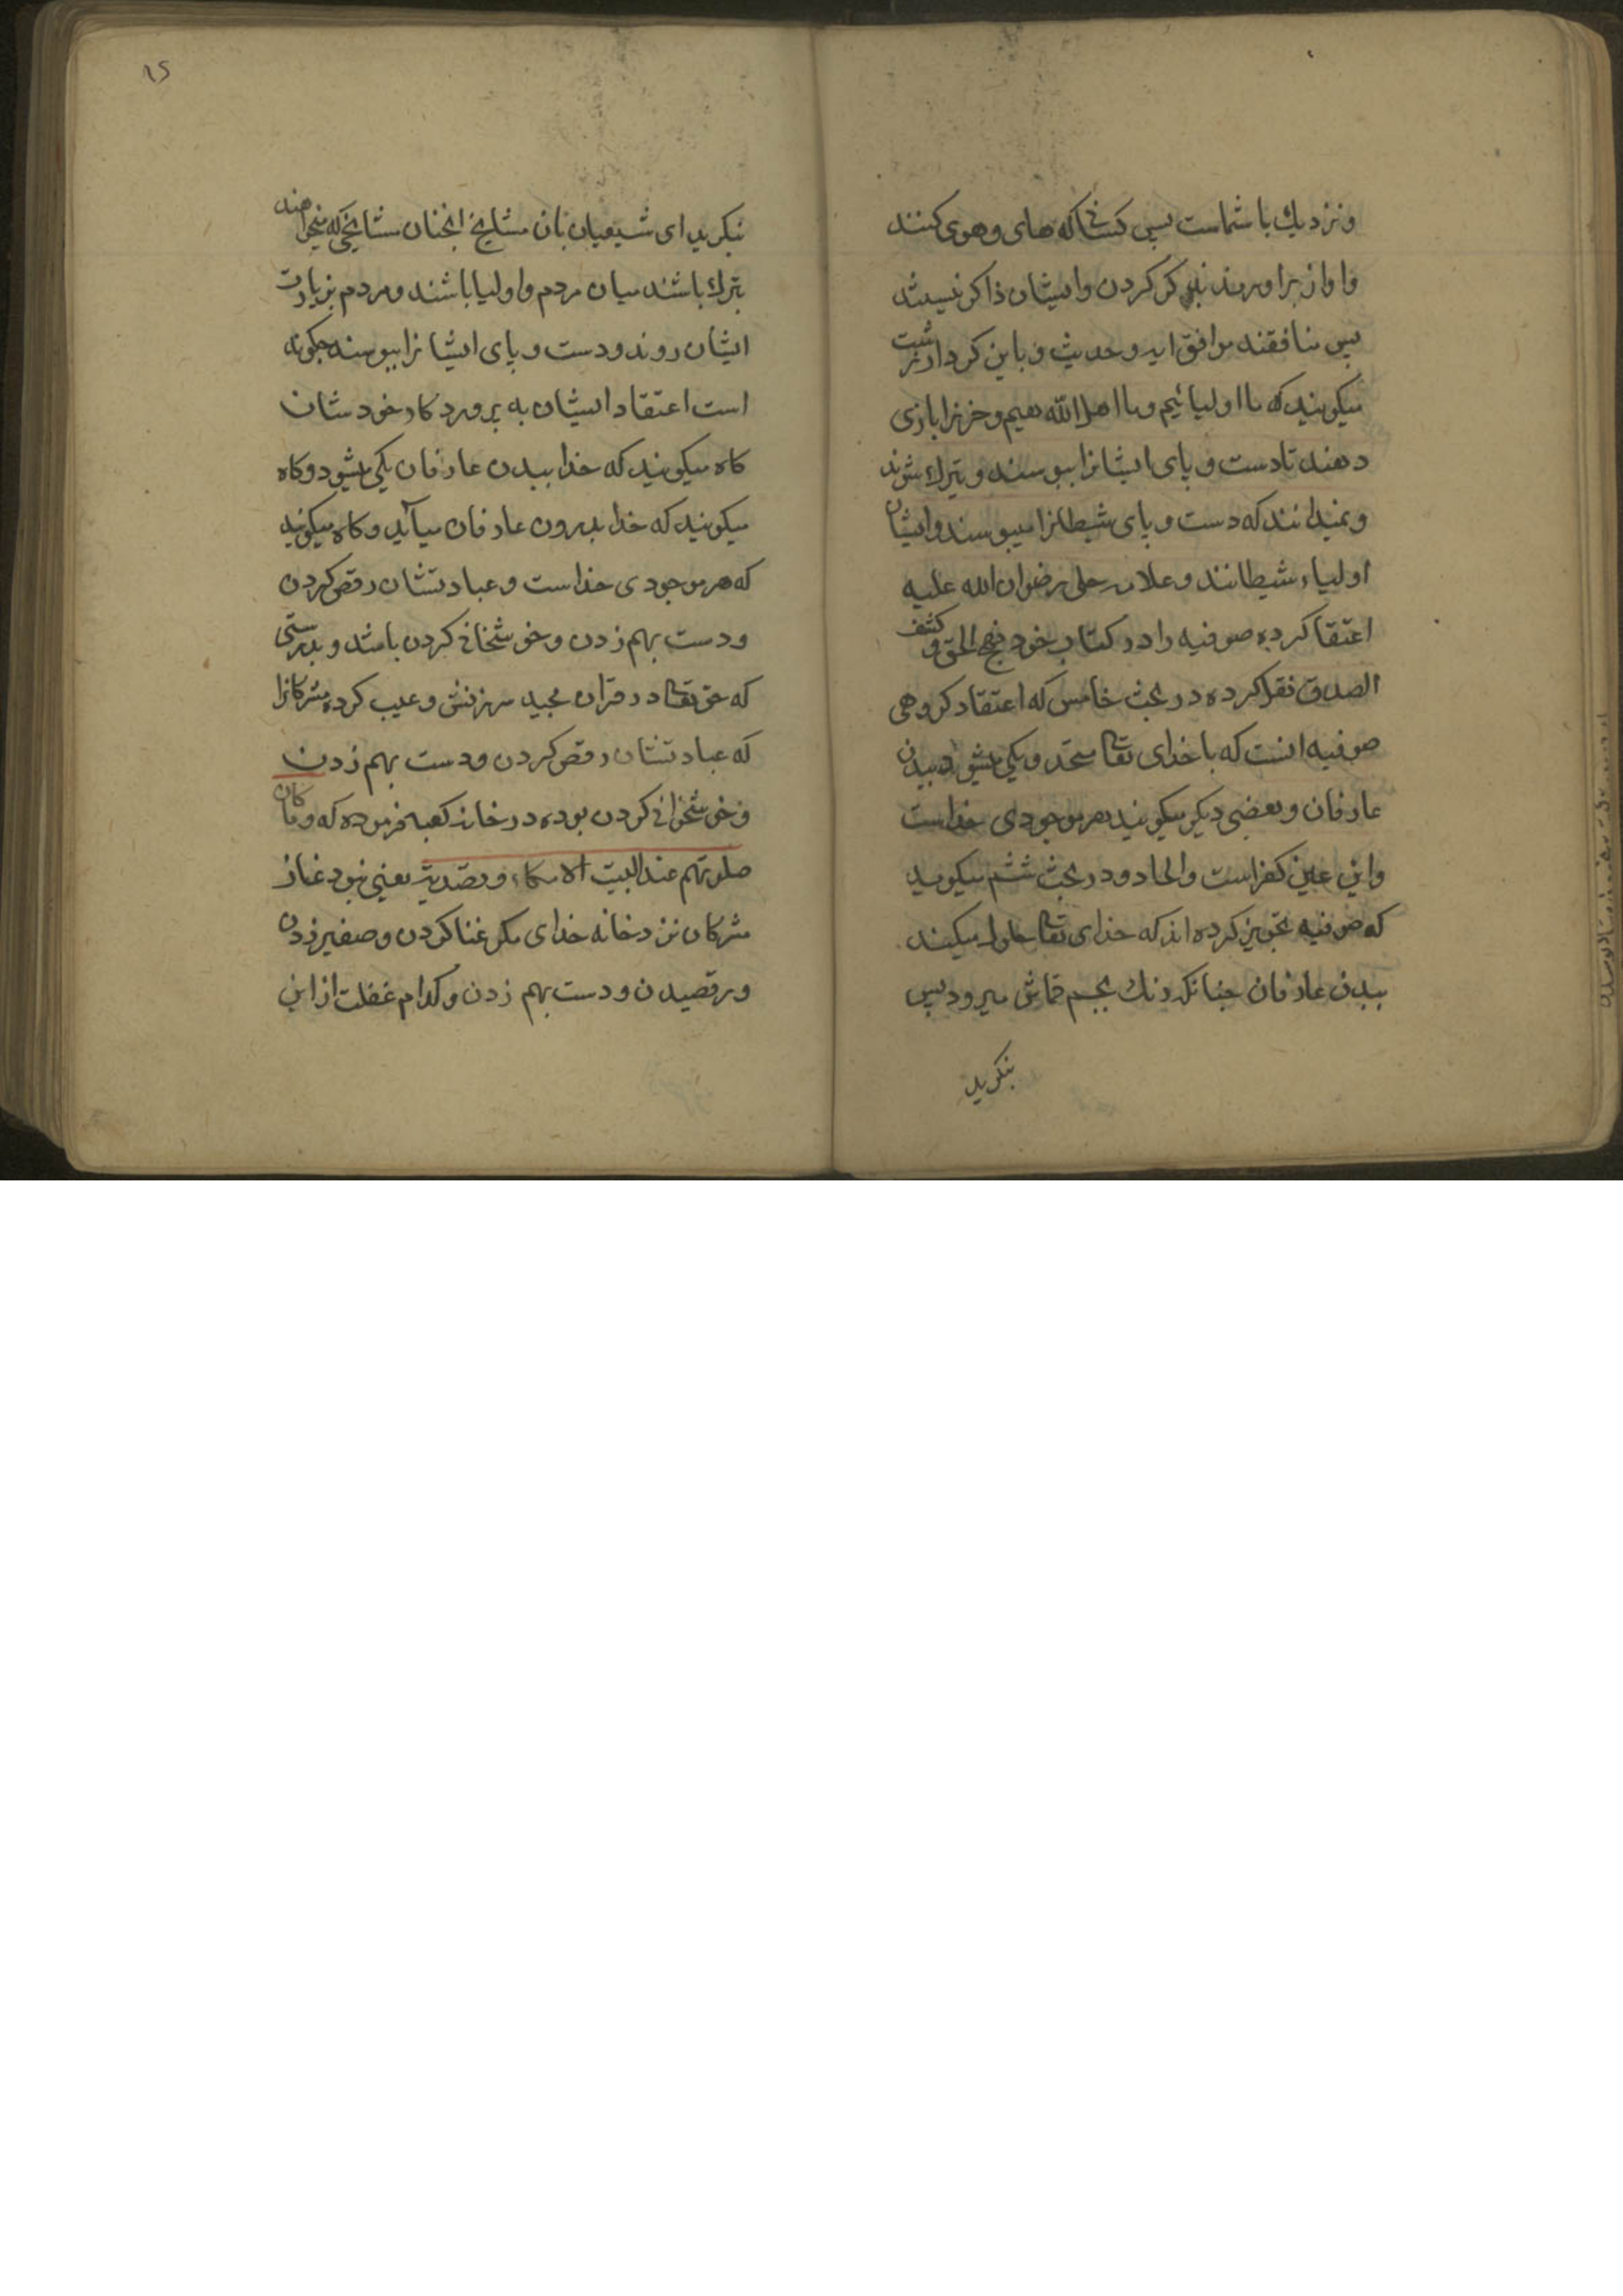 ونزدیك با شماست پس کسانی که های وهوی کنند
واواز براورند بذکر کردن وایشان ذاکر نیستند
پس منافقند موافق ایه وحدیث و با این کردار زشت
میکویند که ما اولیائیم وما اهل الله هیم وخر را بازی
دهند تا دست و پای ایشانرا ببوسند و تبرك شوند
ونمیدانند که دست و پای شیطانرا میبوسند وایشان
اولیاء شیطانند وعلامه حلی رضوان الله علیه
اعتقاد کرده صوفیه را در کتاب خود نهج الحق و کشف
الصدق نقل کرده در بحث خامس که اعتقاد کروهی
صوفیه انست که با خدای تعالی متحد ویکی میشود ببدن
عارفان وبعضی دیکر میکویند هر موجودی خداست
واین عین کفراست والحاد ودر بحث ششم میکوید
که صوفیه تجویز کرده اند که خدای تعالی حلول میکند
ببدن عارفان چنانکه رنك بجسم قماش میرود پس
بنکرید
۱۵
بنکرید ای شیعیان بان مشایخ انچنان مشایخی که میخواهند
تبرك باشند میان مردم واولیا باشند ومردم بزیارت
ایشان روند ودست و پای ایشانرا ببوسند چکونه
است اعتقاد ایشان به پرورد کار خودشان
کاه میکویند که خدا ببدن عارفان یکی میشود وکاه
میکویند که خدا بدرون عارفان میآید وکاه میکویند
که هر موجودی خداست وعبادتشان رقص کردن
ودست بهم زدن وخوشخانی کردن باشد و بدرستی
که حق تعالی در قران مجید سرزنش وعیب کرده مشرکانرا
که عبادتشان رقص کردن ودست بهم زدن
وخوشخوانی کردن بوده در خانه کعبه فرموده که وما کان
صلوتهم عند البیت الا مکاء وتصدیة یعنی نبود نماز
مشرکان نزد خانه خدای مکر غنا کردن وصفیر زدن
ورقصیدن ودست بهم زدن وکدام غفلت از این